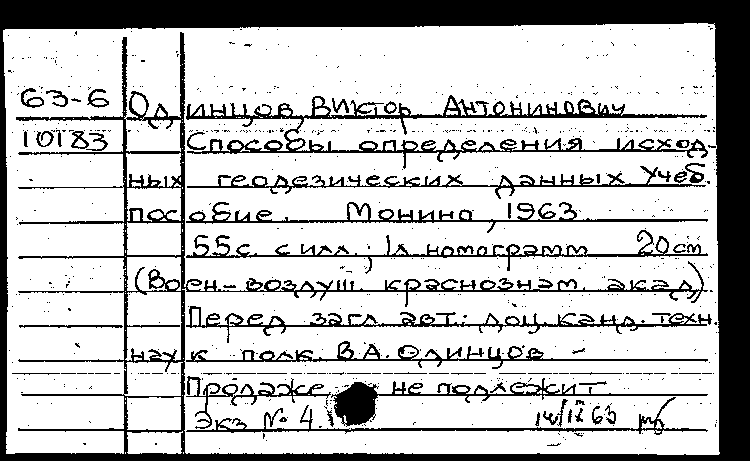 63-6 Одинцов, Виктор Антонинович
10183 Способы определения исход-
ных геодезических данных Учеб.
пособие. Монино, 1963
55с. с илл.; 1л номограмм 20см
(Воен.-воздуш. краснознам. акад)
Перед загл. авт.: доц. канд. техн.
наук полк. В.А. Одинцов -
Продаже не подлежит
Экз № 4. 14/IX 63